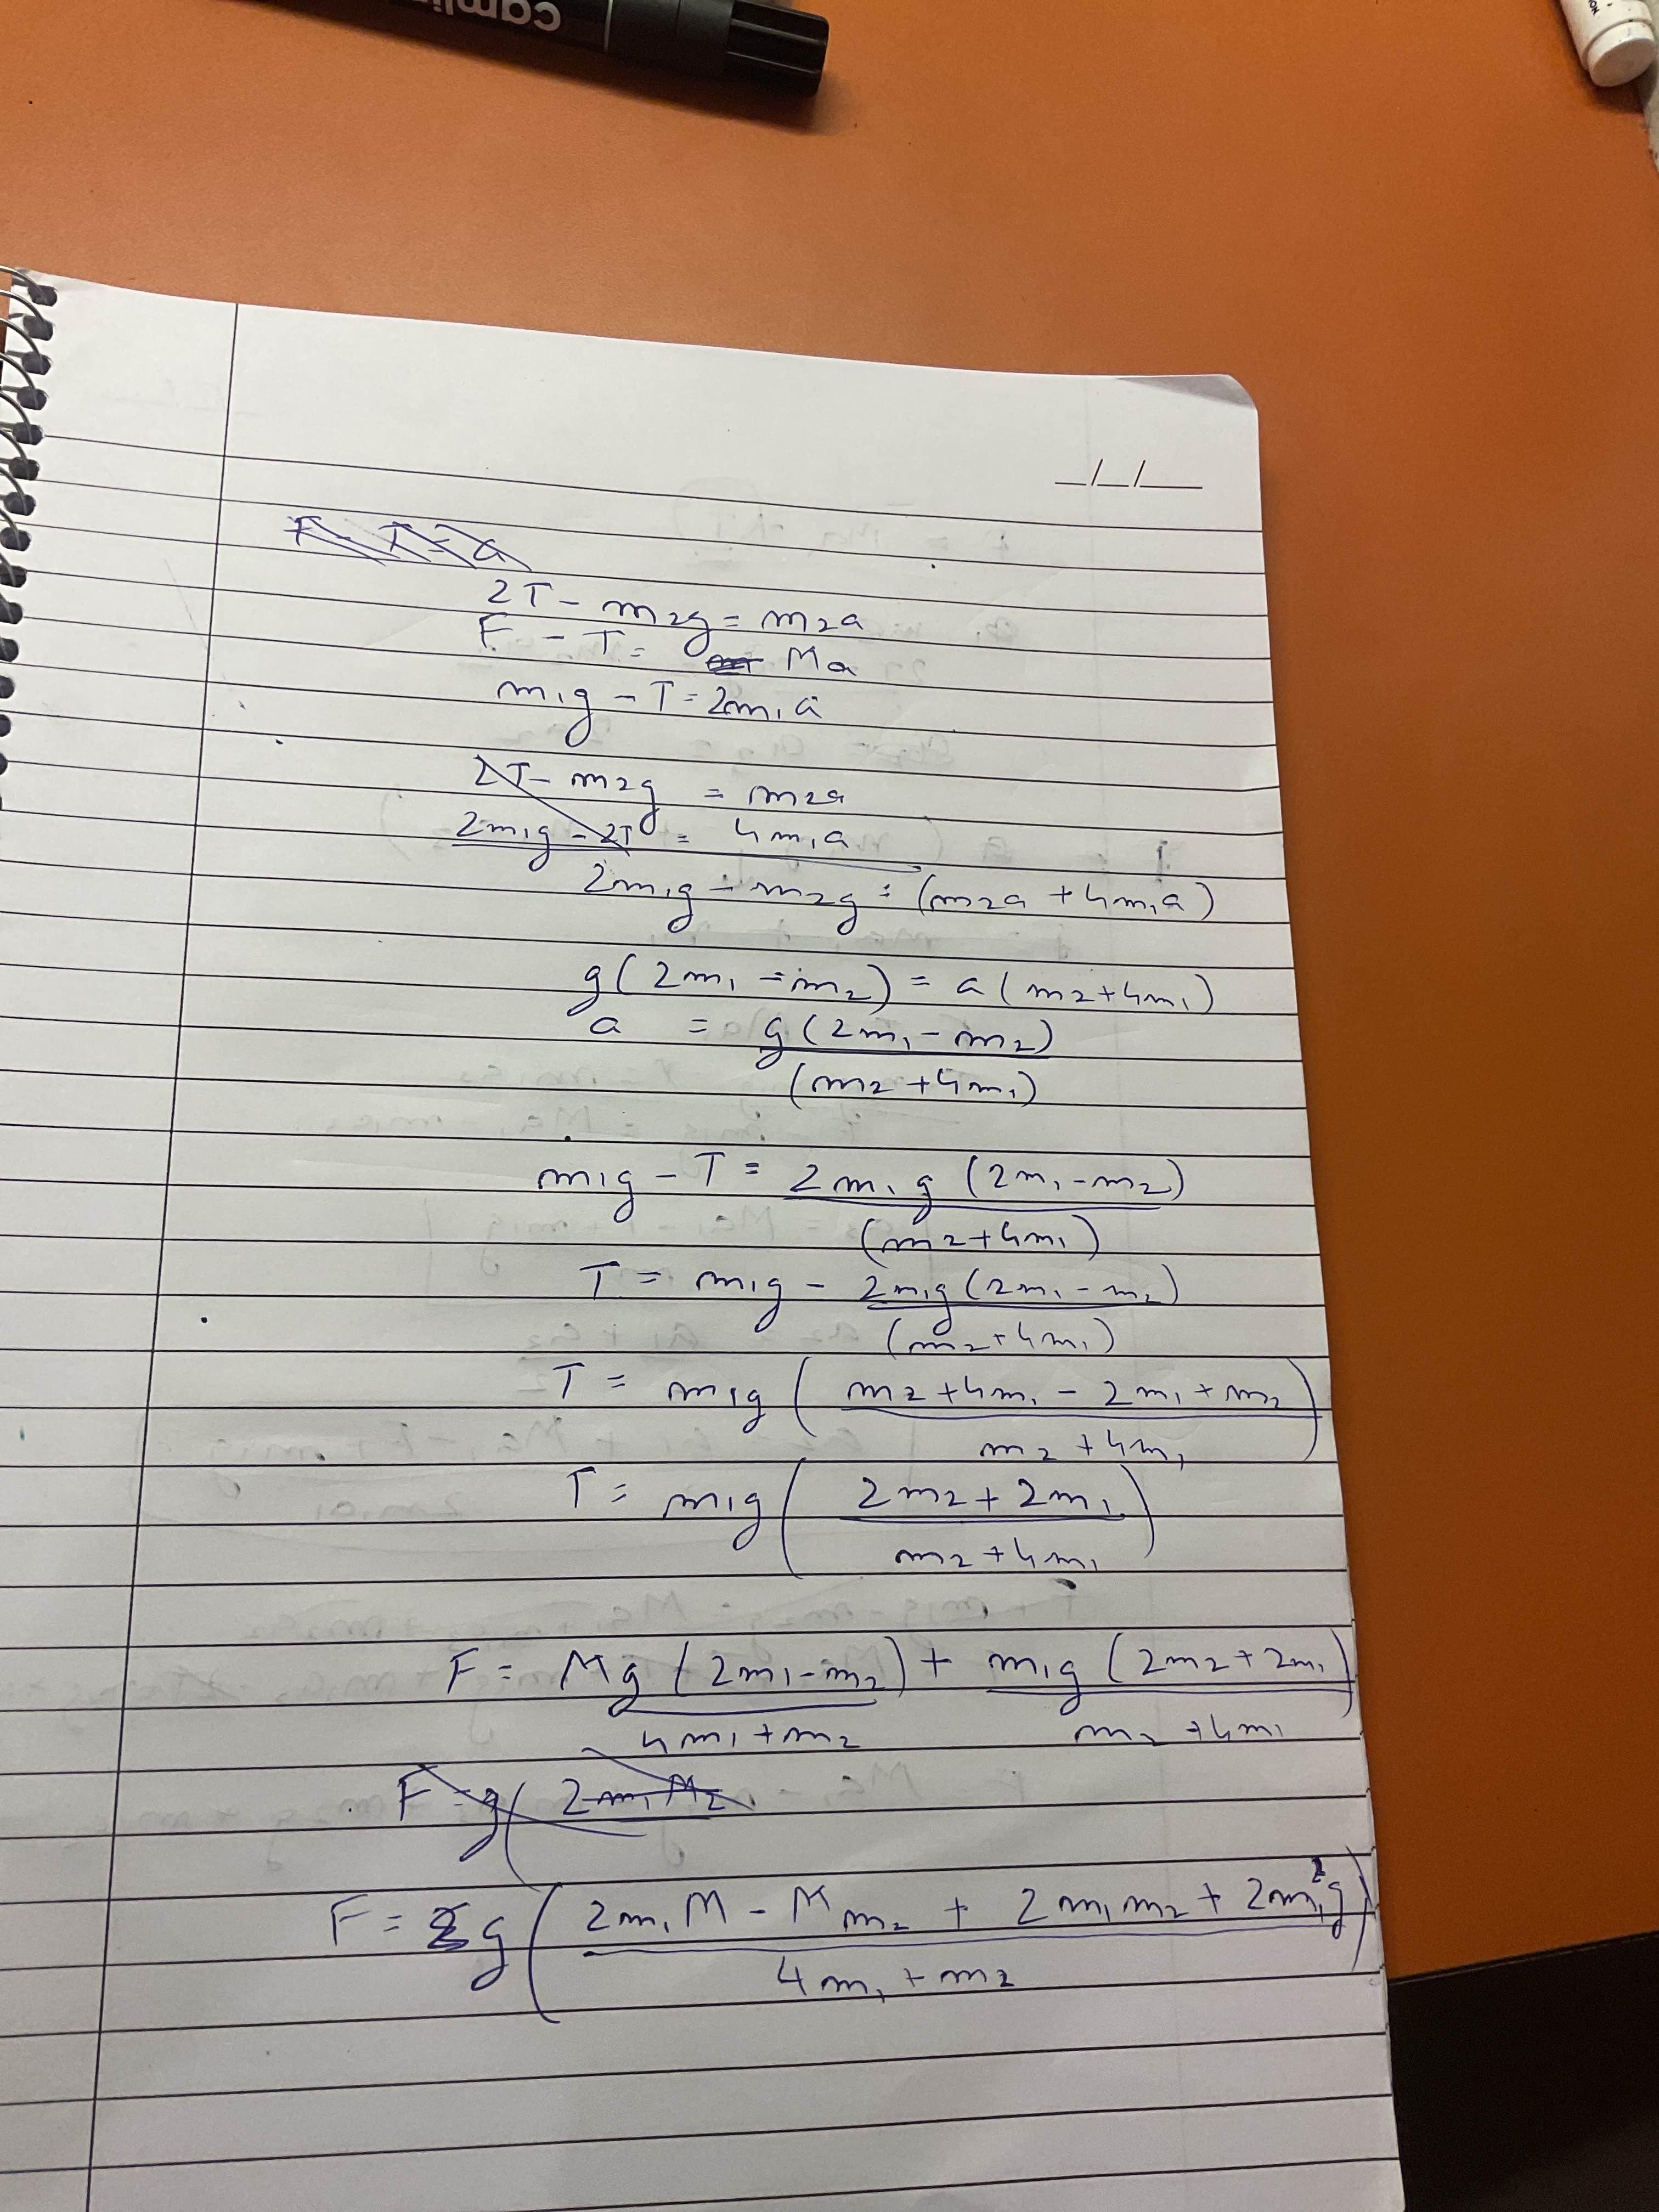 camlin
_/_/__
F - T = a
2T - m₂g = m₂a
F - T = Ma
m₁g - T = 2m₁a
2T - m₂g = m₂a
2m₁g - 2T = 4m₁a
2m₁g - m₂g = (m₂a + 4m₁a)
g(2m₁ - m₂) = a(m₂+4m₁)
a = g(2m₁ - m₂)
(m₂ + 4m₁)
m₁g - T = 2m₁g (2m₁ - m₂)
(m₂+4m₁)
T = m₁g - 2m₁g(2m₁ - m₂)
(m₂+4m₁)
T = m₁g ( m₂ + 4m₁ - 2m₁ + m₂ )
m₂ + 4m₁
T = m₁g ( 2m₂ + 2m₁ )
m₂ + 4m₁
F = Mg (2m₁ - m₂) + m₁g (2m₂ + 2m₁)
4m₁ + m₂ m₂ + 4m₁
F = g( 2m₁M₂
F = g ( 2m₁M - Mm₂ + 2m₁m₂ + 2m₁²g )
4m₁ + m₂